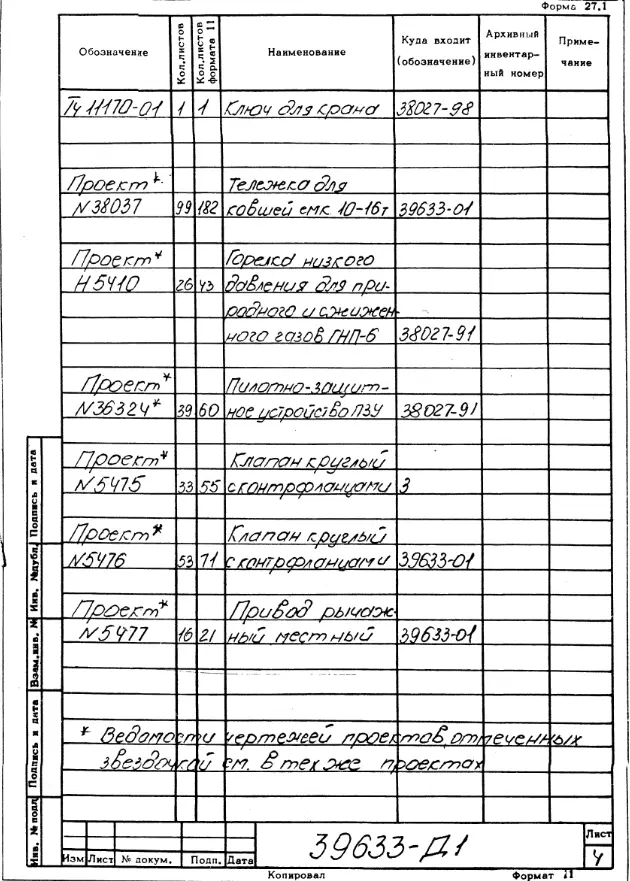 Форма 27.1
Обозначение Кол.листов Кол.листов формата 11 Наименование Куда входит (обозначение) Архивный инвентарный номер Примечание
Ту 11170-01 1 1 Ключ для крана 38027-98
Проект* Тележка для
N 38037 99 182 ковшей емк. 10-16т 39633-01
Проект* Горелка низкого
Н 5410 26 43 давления для при-
родного и сжижен-
ного газов ГНП-6 38027-91
Проект* Пилотно-защит-
N 36324* 39 60 ное устройство ПЗУ 38027-91
Проект* Клапан круглый
N 5475 33 55 с контрфланцами 3
Проект* Клапан круглый
N 5476 53 71 с контрфланцами 39633-01
Проект* Привод рычаж-
N 5477 16 21 ный местный 39633-01
* Ведомости чертежей проектов, отмеченных
звездочкой см. в тех же проектах
Инв. № подл. Подпись и дата Взам.инв. № Инв. №дубл. Подпись и дата
Изм Лист № докум. Подп. Дата
39633-Д1
Лист
4
Копировал Формат 11